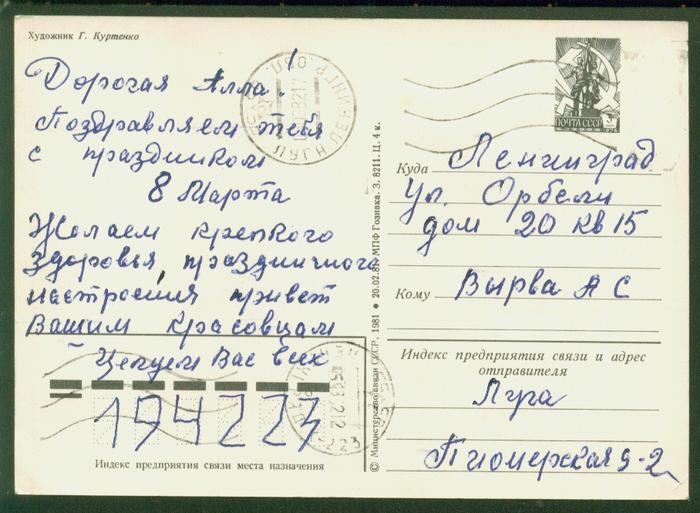 Художник Г. Куртенко
Дорогая Алла!
Поздравляем тебя
с праздником
8 Марта
Желаем крепкого
здоровья, праздничного
настроения привет
Вашим Красовцам
Целуем Вас всех
194223
Индекс предприятия связи места назначения
© Министерство связи СССР, 1981 • 20.02.81. МПФ Гознака. З. 8211. Ц. 4 к.
ПОЧТА СССР
Куда Ленинград
ул. Орбели
дом 20 кв 15
Кому Вырва А С
Индекс предприятия связи и адрес
отправителя
Луга
Пионерская 9-2